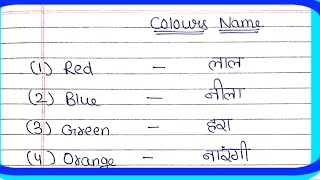 Colours Name
(1) Red — लाल
(2) Blue — नीला
(3) Green — हरा
(4) Orange — नारंगी